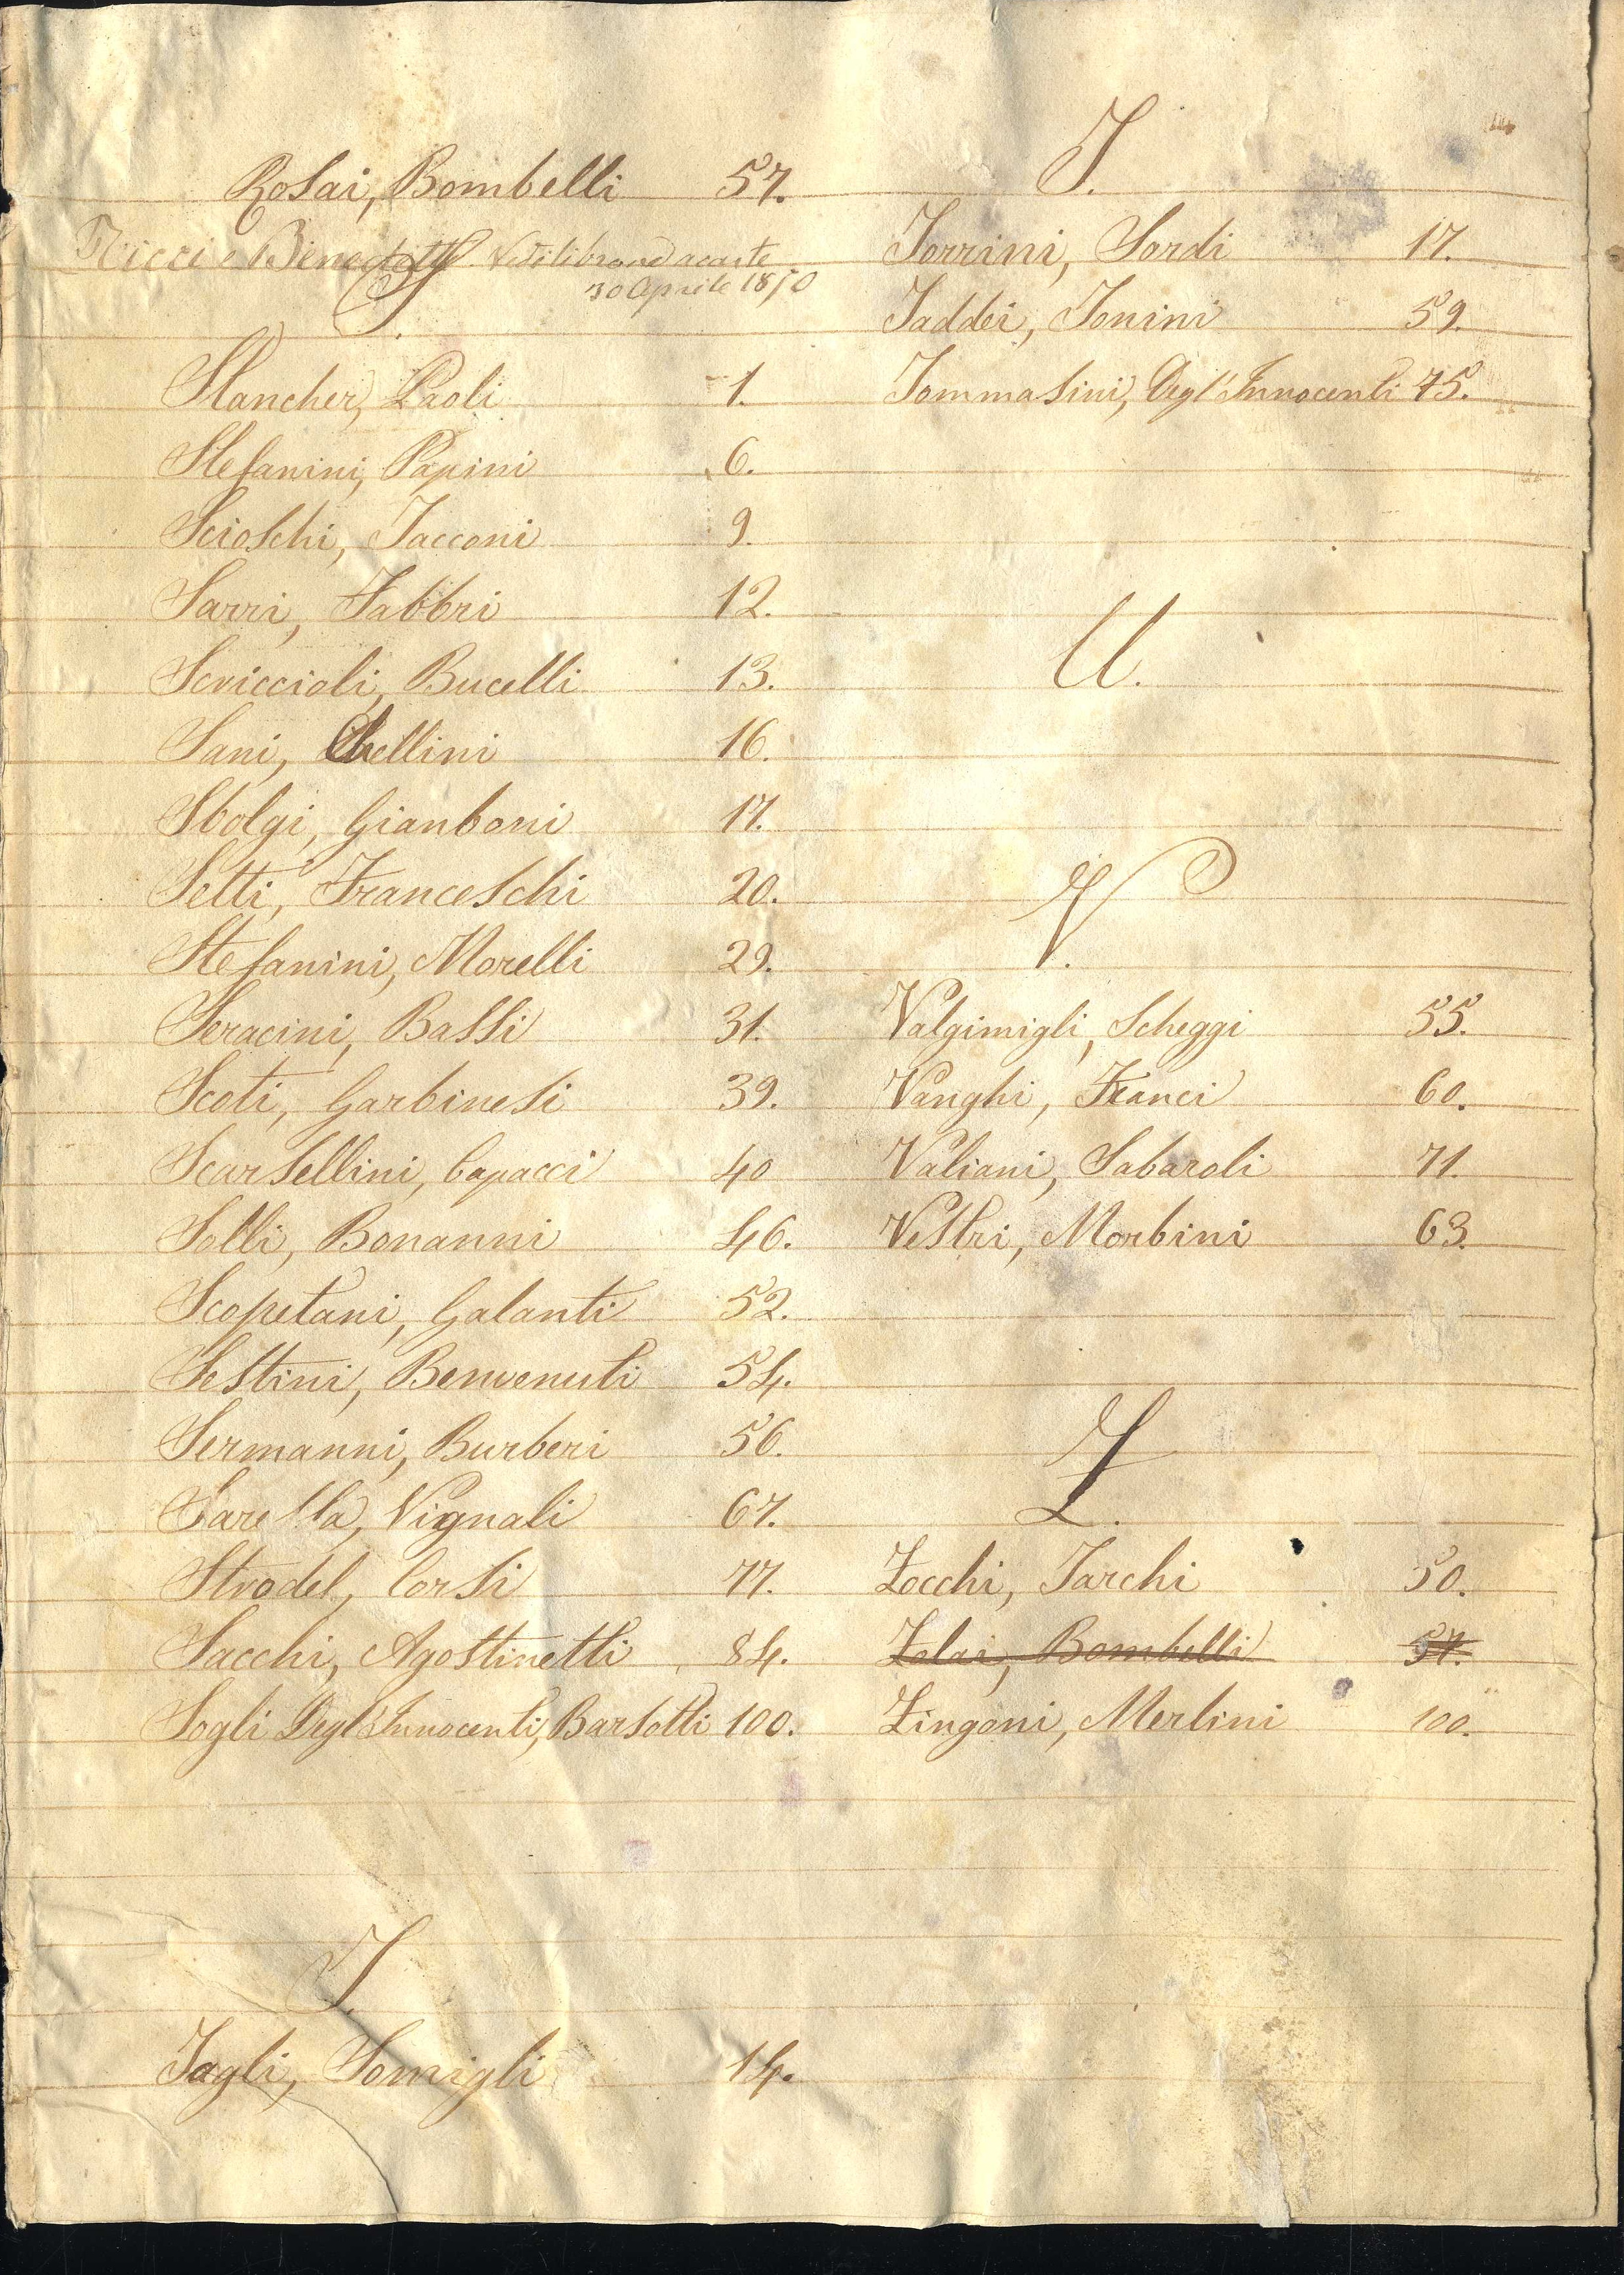 Rosai, Bombelli 57.
Ricci e Benedetti Vedi librone a carte
30 Aprile 1870
S.
Stancher, Paoli 1.
Stefanini, Papini 6.
Scioschi, Tacconi 9.
Sarri, Fabbri 12.
Scriccioli, Bucelli 13.
Sani, Chellini 16.
Sbolgi, Gianboni 17.
Setti, Franceschi 20.
Stefanini, Morelli 29.
Seracini, Bassi 31.
Scoti, Garbinesi 39.
Scarsellini, Capacci 40
Solli, Bonanni 46.
Scopetani, Galanti 52.
Sestini, Benvenuti 54.
Sermanni, Burberi 56.
Sarella, Vignali 67.
Strodel, Corsi 77.
Sacchi, Agostinetti 84.
Sogli Degl'Innocenti, Barsotti 100.
T.
Tagli, Somigli 14.
T.
Torrini, Sordi 17.
Taddei, Tonini 59.
Tommasini, Degl'Innocenti 75.
U.
V.
Valgimigli, Scheggi 55.
Vanghi, Franci 60.
Valiani, Sabaroli 71.
Vestri, Morbini 63.
Z.
Zocchi, Tarchi 50.
Zolai, Bombelli 57.
Zingoni, Merlini 100.